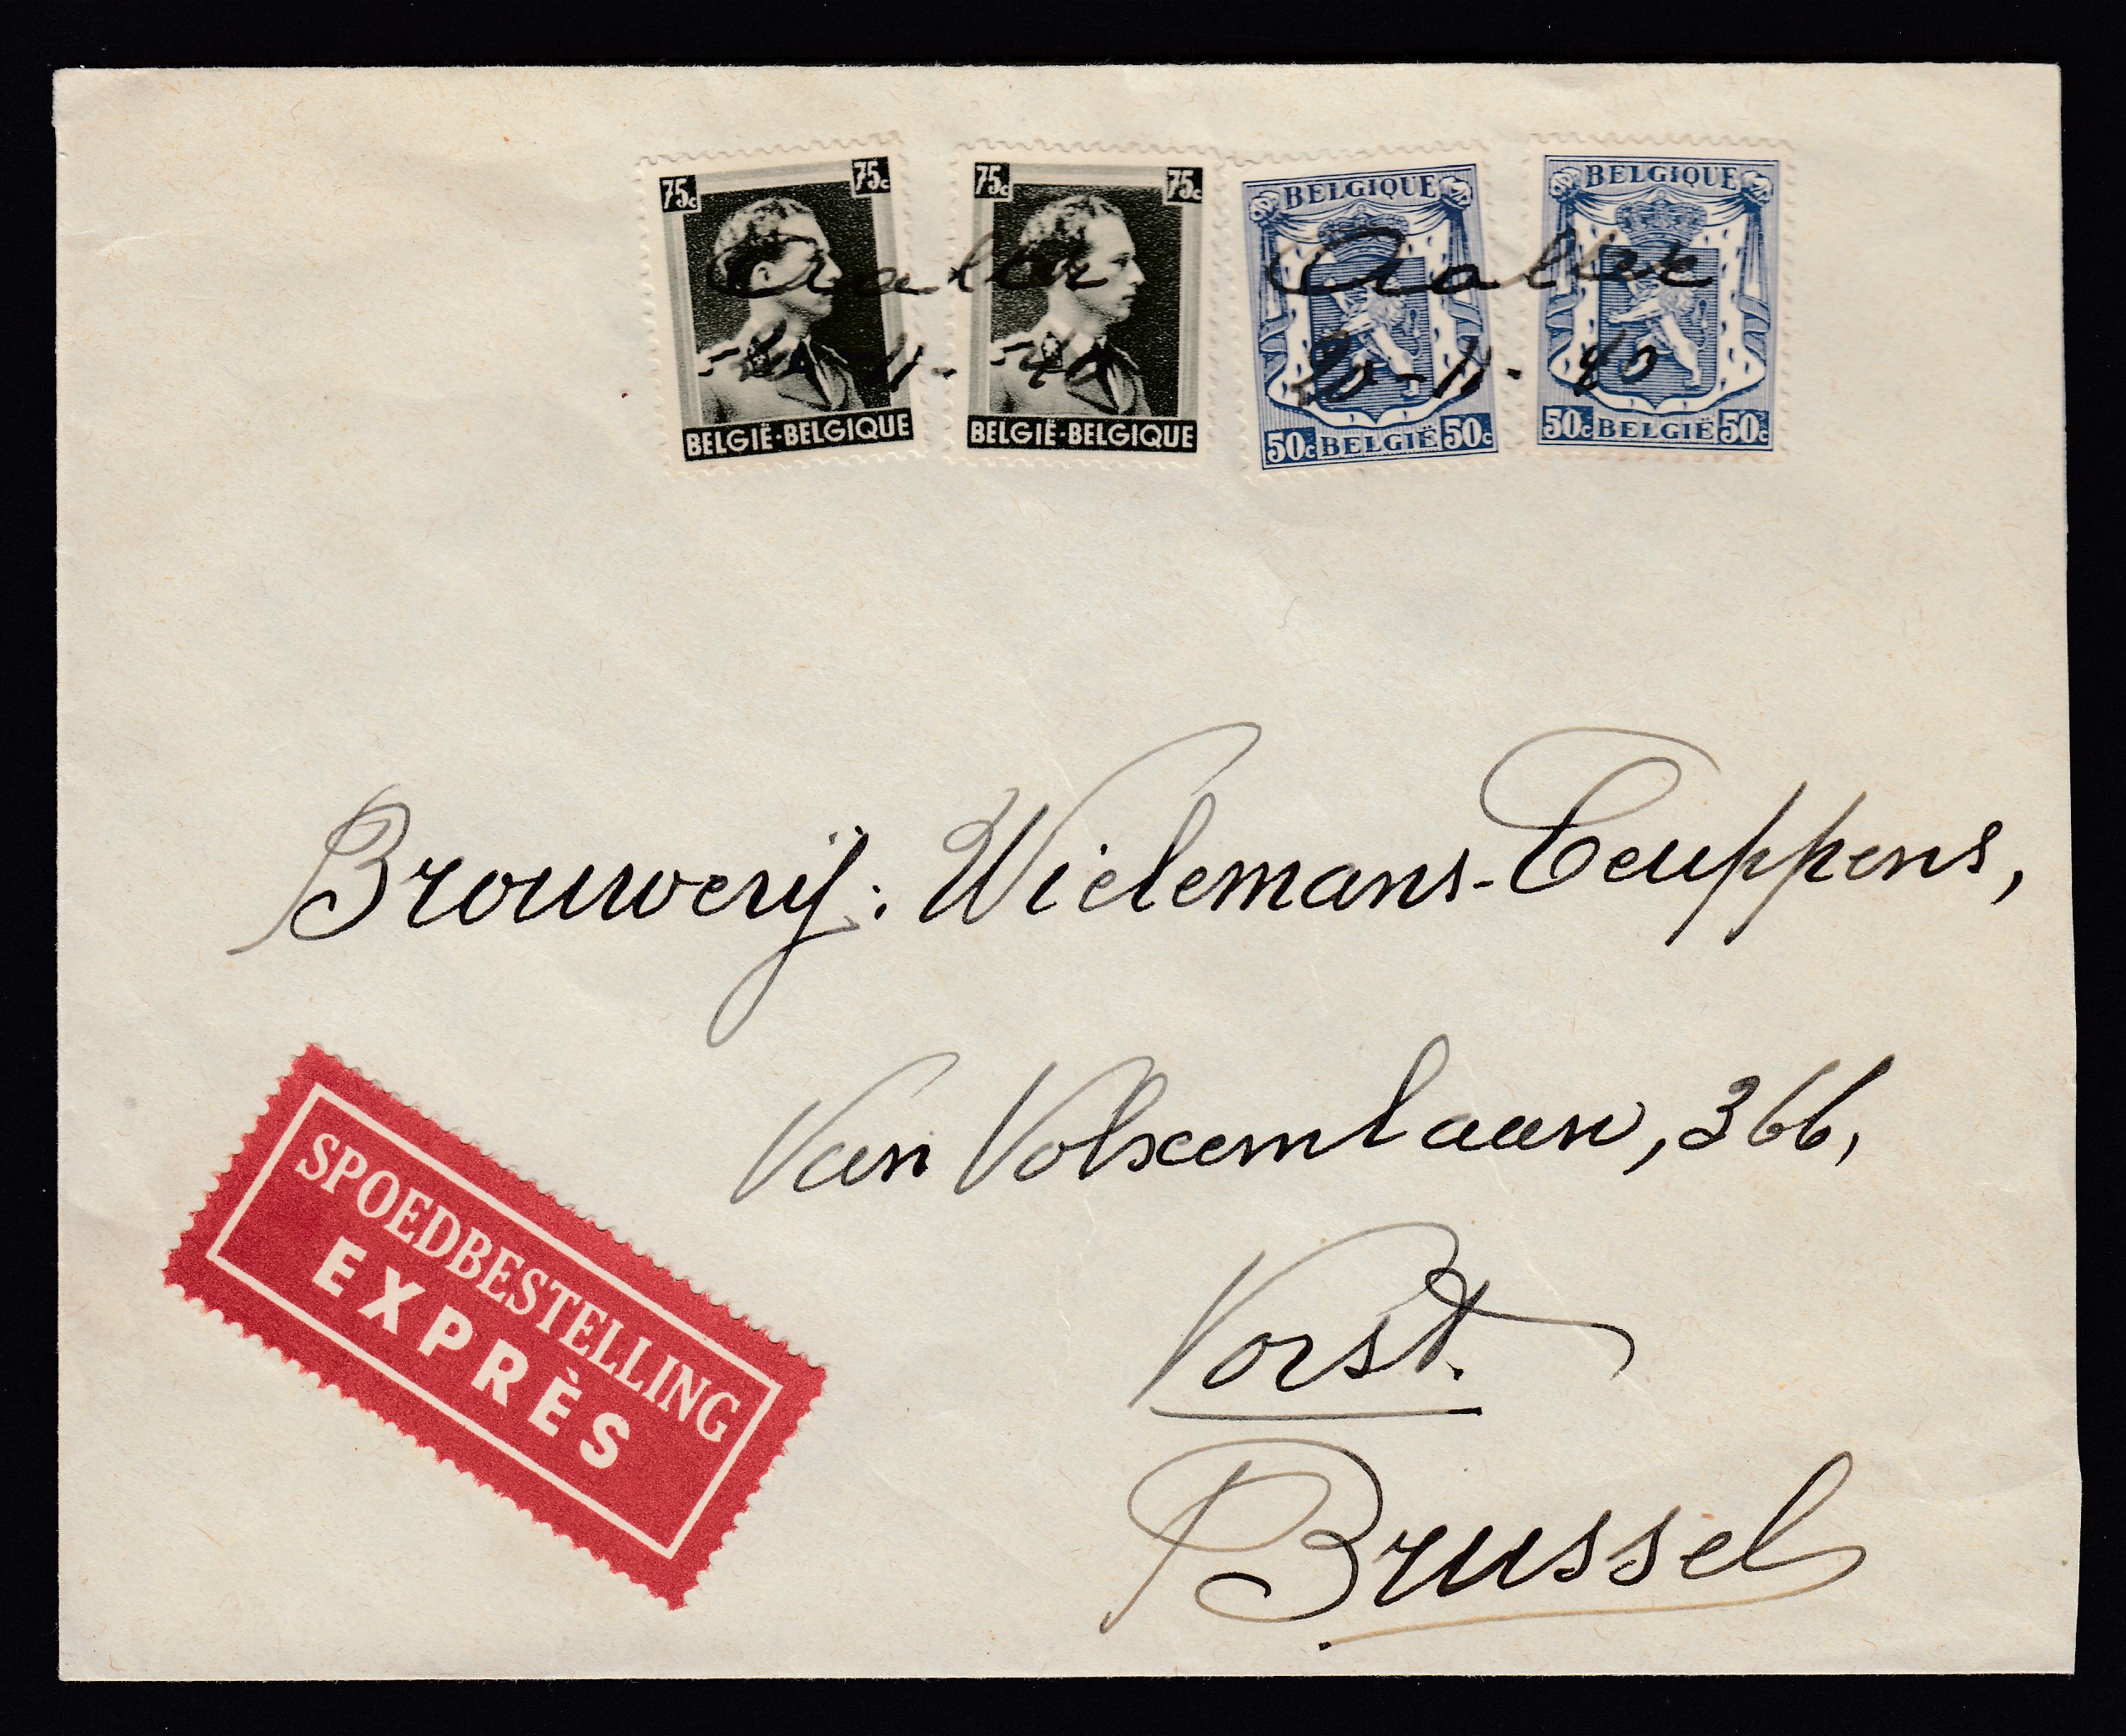 75c 75c
BELGIË-BELGIQUE
75c 75c
BELGIË-BELGIQUE
BELGIQUE
50c BELGIË 50c
BELGIQUE
50c BELGIË 50c
Aalter
Aalter
-11-40
20-11-40
Brouwerij: Wielemans-Ceuppens,
Van Volxemlaan, 366,
Vorst.
Brussel
SPOEDBESTELLING
EXPRÈS